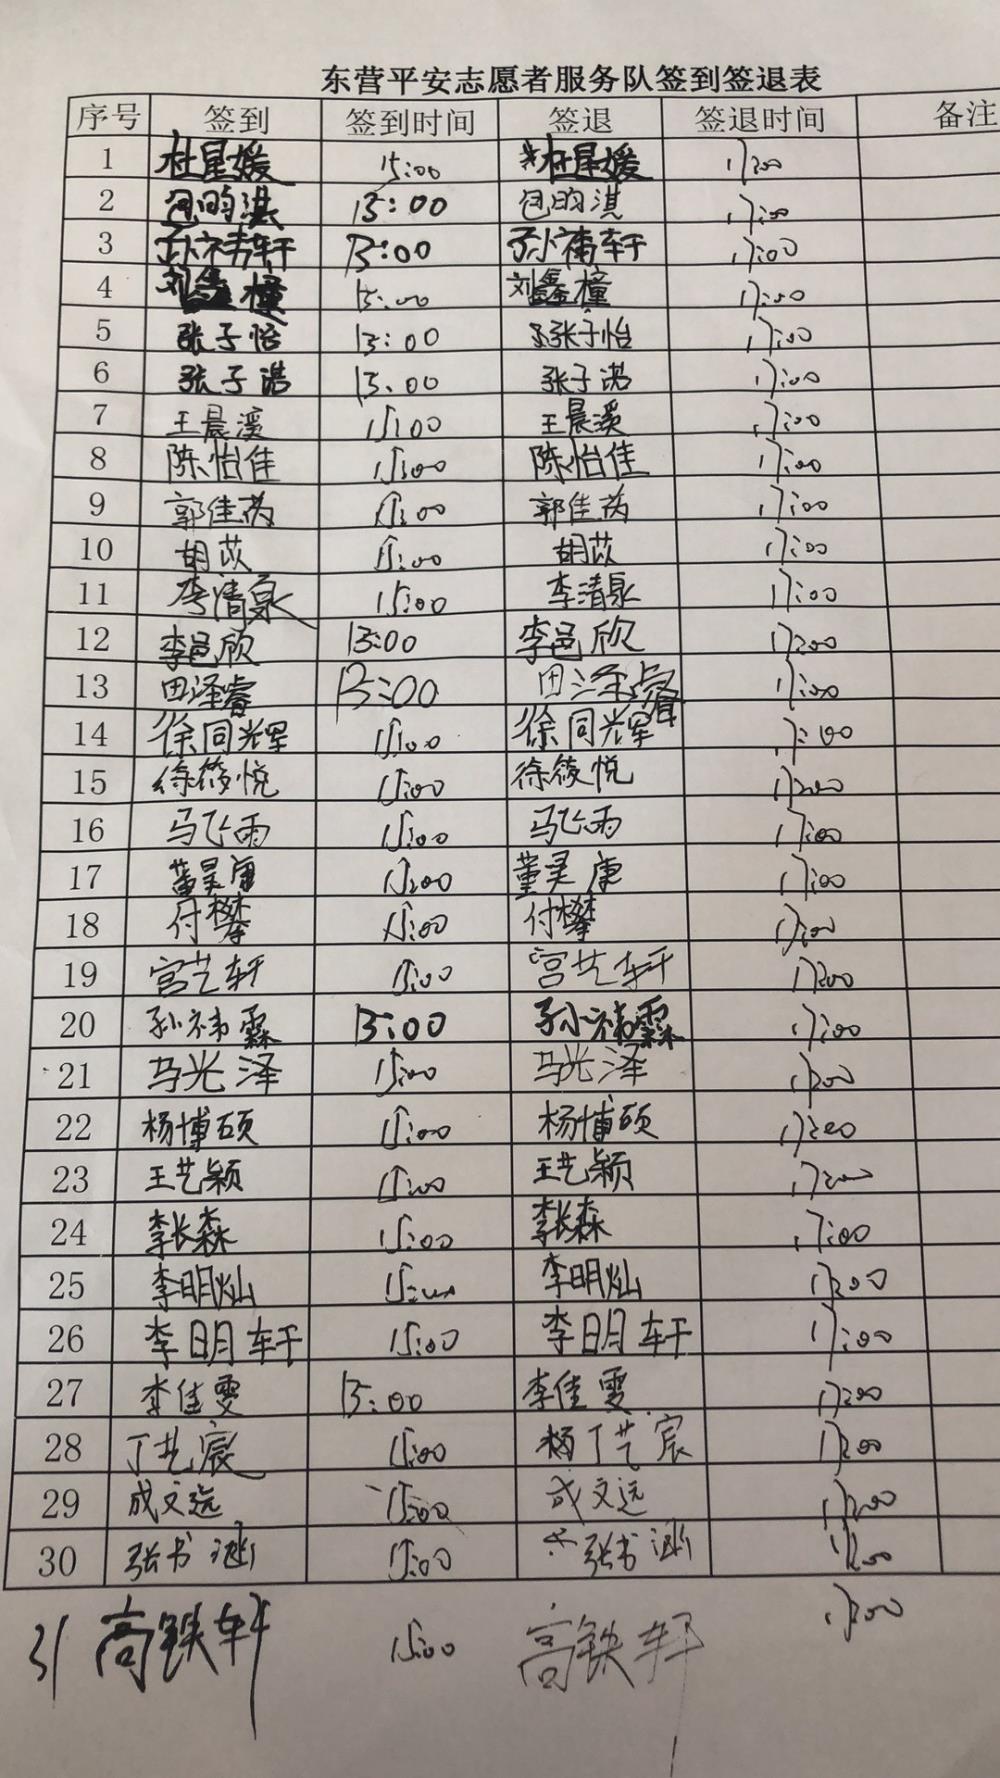 东营平安志愿者服务队签到签退表
序号 签到 签到时间 签退 签退时间 备注
1 杜星媛 15:00 杜星媛 17:00
2 包昀淇 15:00 包昀淇 17:00
3 孙祎轩 15:00 孙祎轩 17:00
4 刘鑫橦 15:00 刘鑫橦 17:00
5 张子怡 15:00 张子怡 17:00
6 张子浩 15:00 张子浩 17:00
7 王晨溪 15:00 王晨溪 17:00
8 陈怡佳 15:00 陈怡佳 17:00
9 郭佳芮 15:00 郭佳芮 17:00
10 胡苡 15:00 胡苡 17:00
11 李清泉 15:00 李清泉 17:00
12 李邑欣 15:00 李邑欣 17:00
13 田泽睿 15:00 田泽睿 17:00
14 徐同光军 15:00 徐同光军 17:00
15 徐筱悦 15:00 徐筱悦 17:00
16 马飞雨 15:00 马飞雨 17:00
17 董昊康 15:00 董昊康 17:00
18 付攀 15:00 付攀 17:00
19 宫艺轩 15:00 宫艺轩 17:00
20 孙祎霖 15:00 孙祎霖 17:00
21 马光泽 15:00 马光泽 17:00
22 杨博硕 15:00 杨博硕 17:00
23 王艺颖 15:00 王艺颖 17:00
24 李长森 15:00 李长森 17:00
25 李明灿 15:00 李明灿 17:00
26 李明轩 15:00 李明轩 17:00
27 李佳雯 15:00 李佳雯 17:00
28 丁艺宸 15:00 丁艺宸 17:00
29 成文远 15:00 成文远 17:00
30 张书涵 15:00 张书涵 17:00
31 高铁轩 15:00 高铁轩 17:00